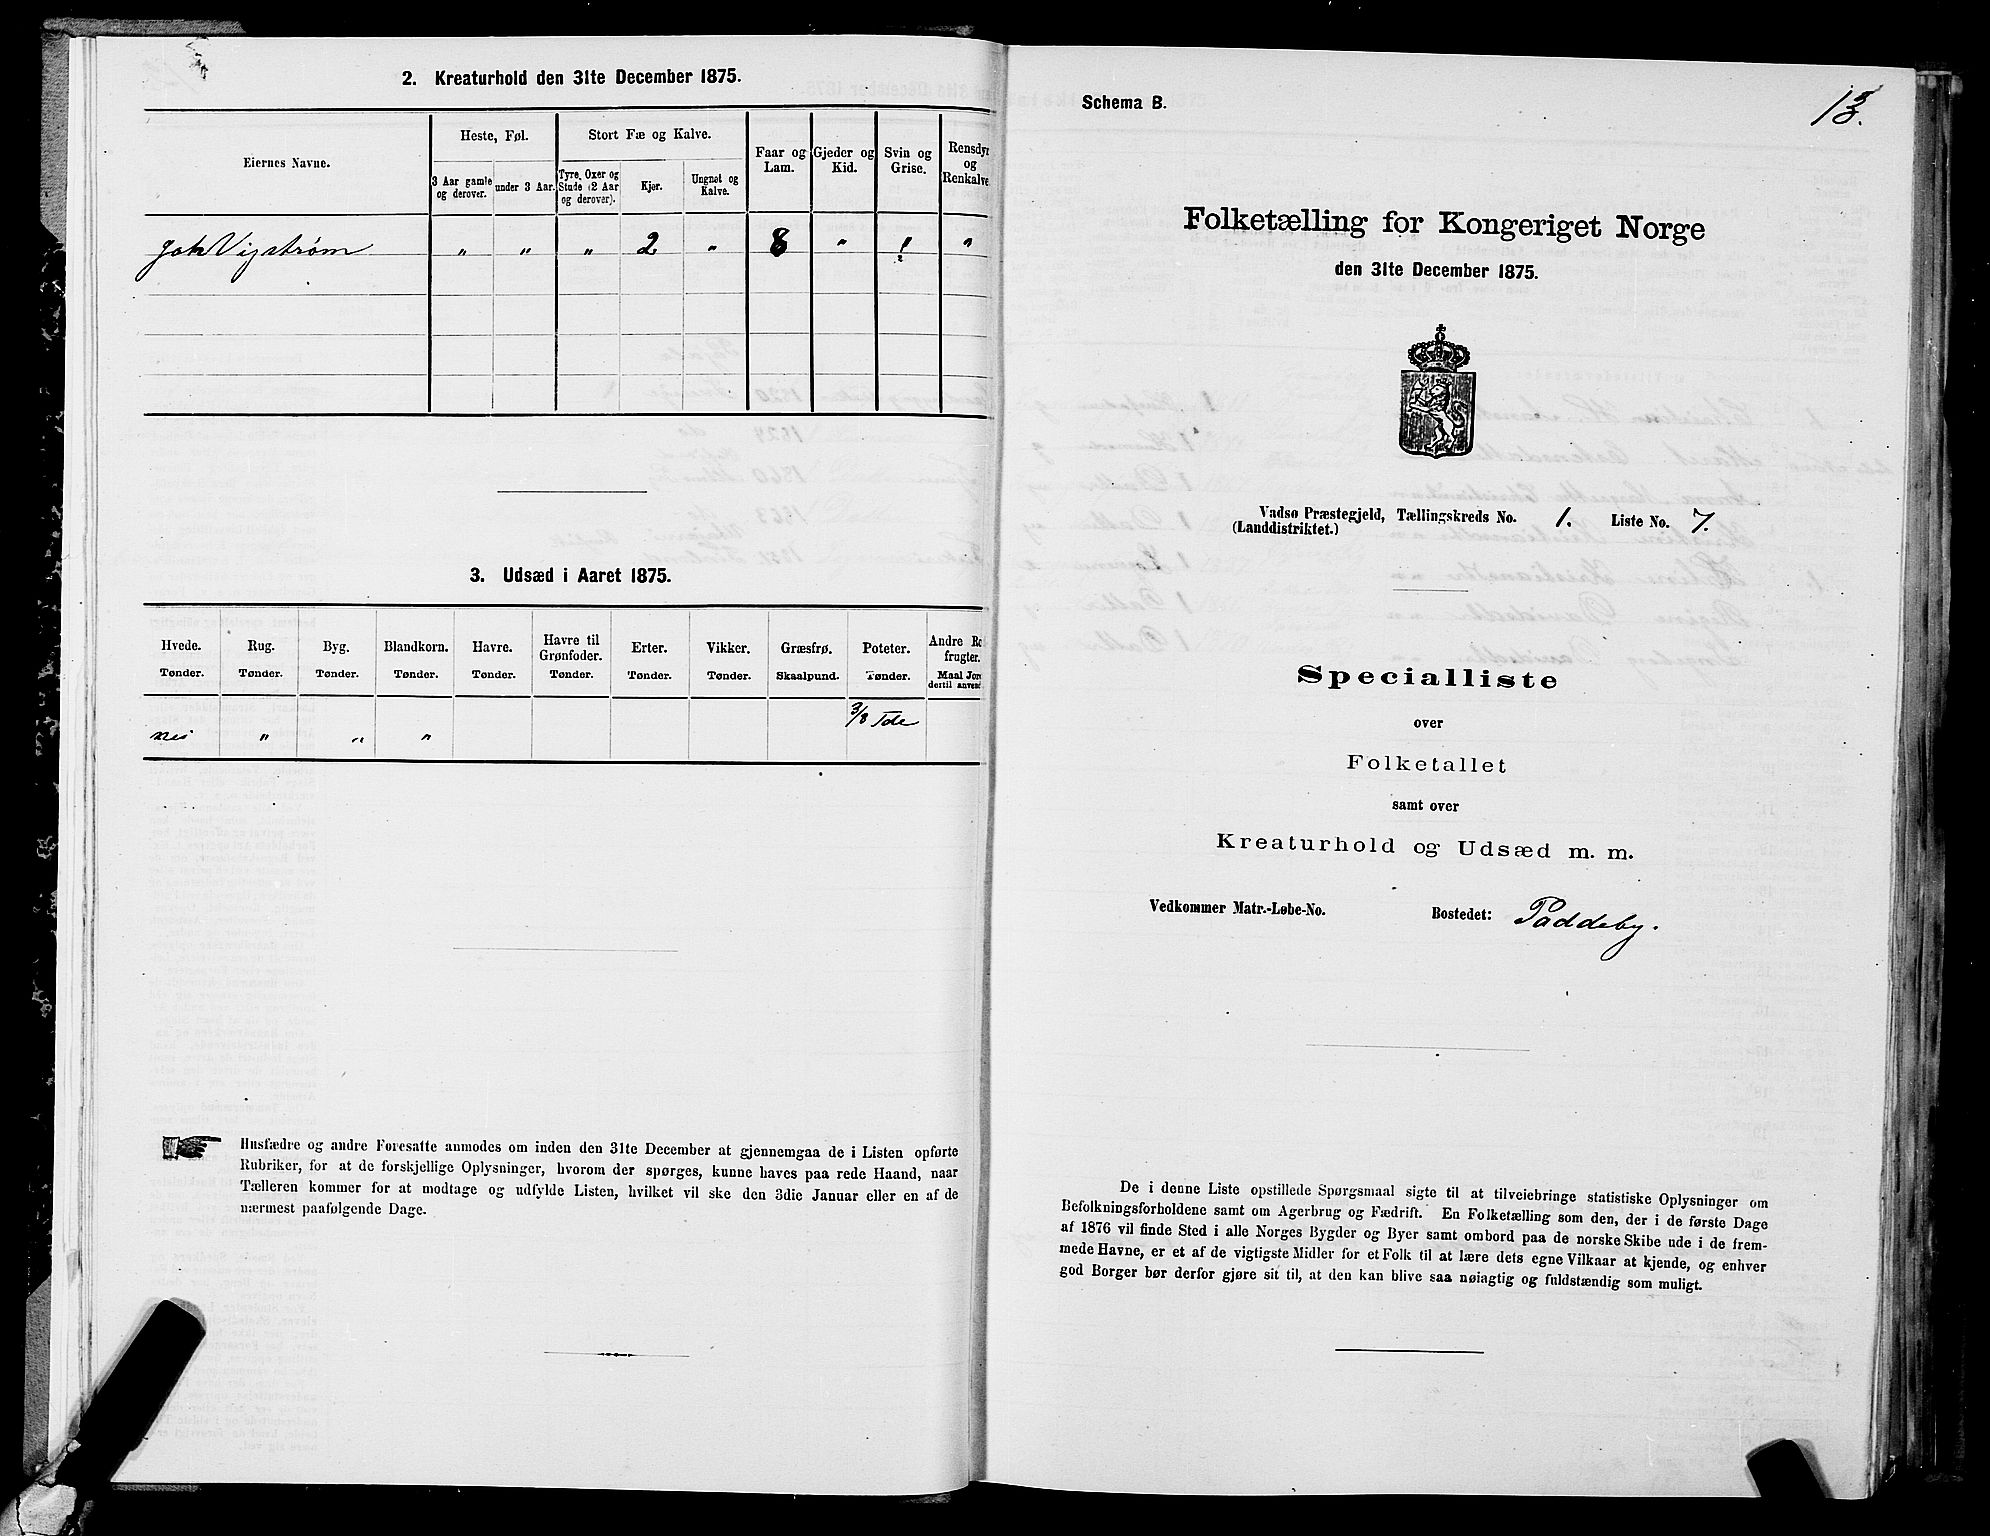 2. Kreaturhold den 31te December 1875.
Eiernes Navne.
Heste, Føl.
Stort Fæ og Kalve.
Faar og Lam.
Gjeder og Kid.
Svin og Grise.
Rensdyr og Renkalve
3 Aar gamle og derover.
under 3 Aar.
Tyre, Oxer og Stude (2 Aar og derover).
Kjør.
Ungnøt og Kalve.
Joh Vigstrøm " " " 2 " 8 " "
3. Udsæd i Aaret 1875.
Hvede. Rug. Byg. Blandkorn. Havre. Havre til Grønfoder. Erter. Vikker. Græsfrø. Poteter. Andre Ro frugter.
Tønder. Tønder. Tønder. Tønder. Tønder. Tønder. Tønder. Tønder. Skaalpund. Tønder. Maal Jor dertil anvend
3/8 Tde
nei " " "
Husfædre og andre Foresatte anmodes om inden den 31te December at gjennemgaa de i Listen opførte
Rubriker, for at de forskjellige Oplysninger, hvorom der spørges, kunne haves paa rede Haand, naar
Tælleren kommer for at modtage og udfylde Listen, hvilket vil ske den 3die Januar eller en af de
nærmest paafølgende Dage.
Schema B.
13.
Folketælling for Kongeriget Norge
den 31te December 1875.
Vadsø Præstegjeld, Tællingskreds No. 1. Liste No. 7.
(Landdistriktet.)
Specialliste
over
Folketallet
samt over
Kreaturhold og Udsæd m. m.
Vedkommer Matr.-Løbe-No. Bostedet: Paddeby.
De i denne Liste opstillede Spørgsmaal sigte til at tilveiebringe statistiske Oplysninger om
Befolkningsforholdene samt om Agerbrug og Fædrift. En Folketælling som den, der i de første Dage
af 1876 vil finde Sted i alle Norges Bygder og Byer samt ombord paa de norske Skibe ude i de frem-
mede Havne, er et af de vigtigste Midler for et Folk til at lære dets egne Vilkaar at kjende, og enhver
god Borger bør derfor gjøre sit til, at den kan blive saa nøiagtig og fuldstændig som muligt.